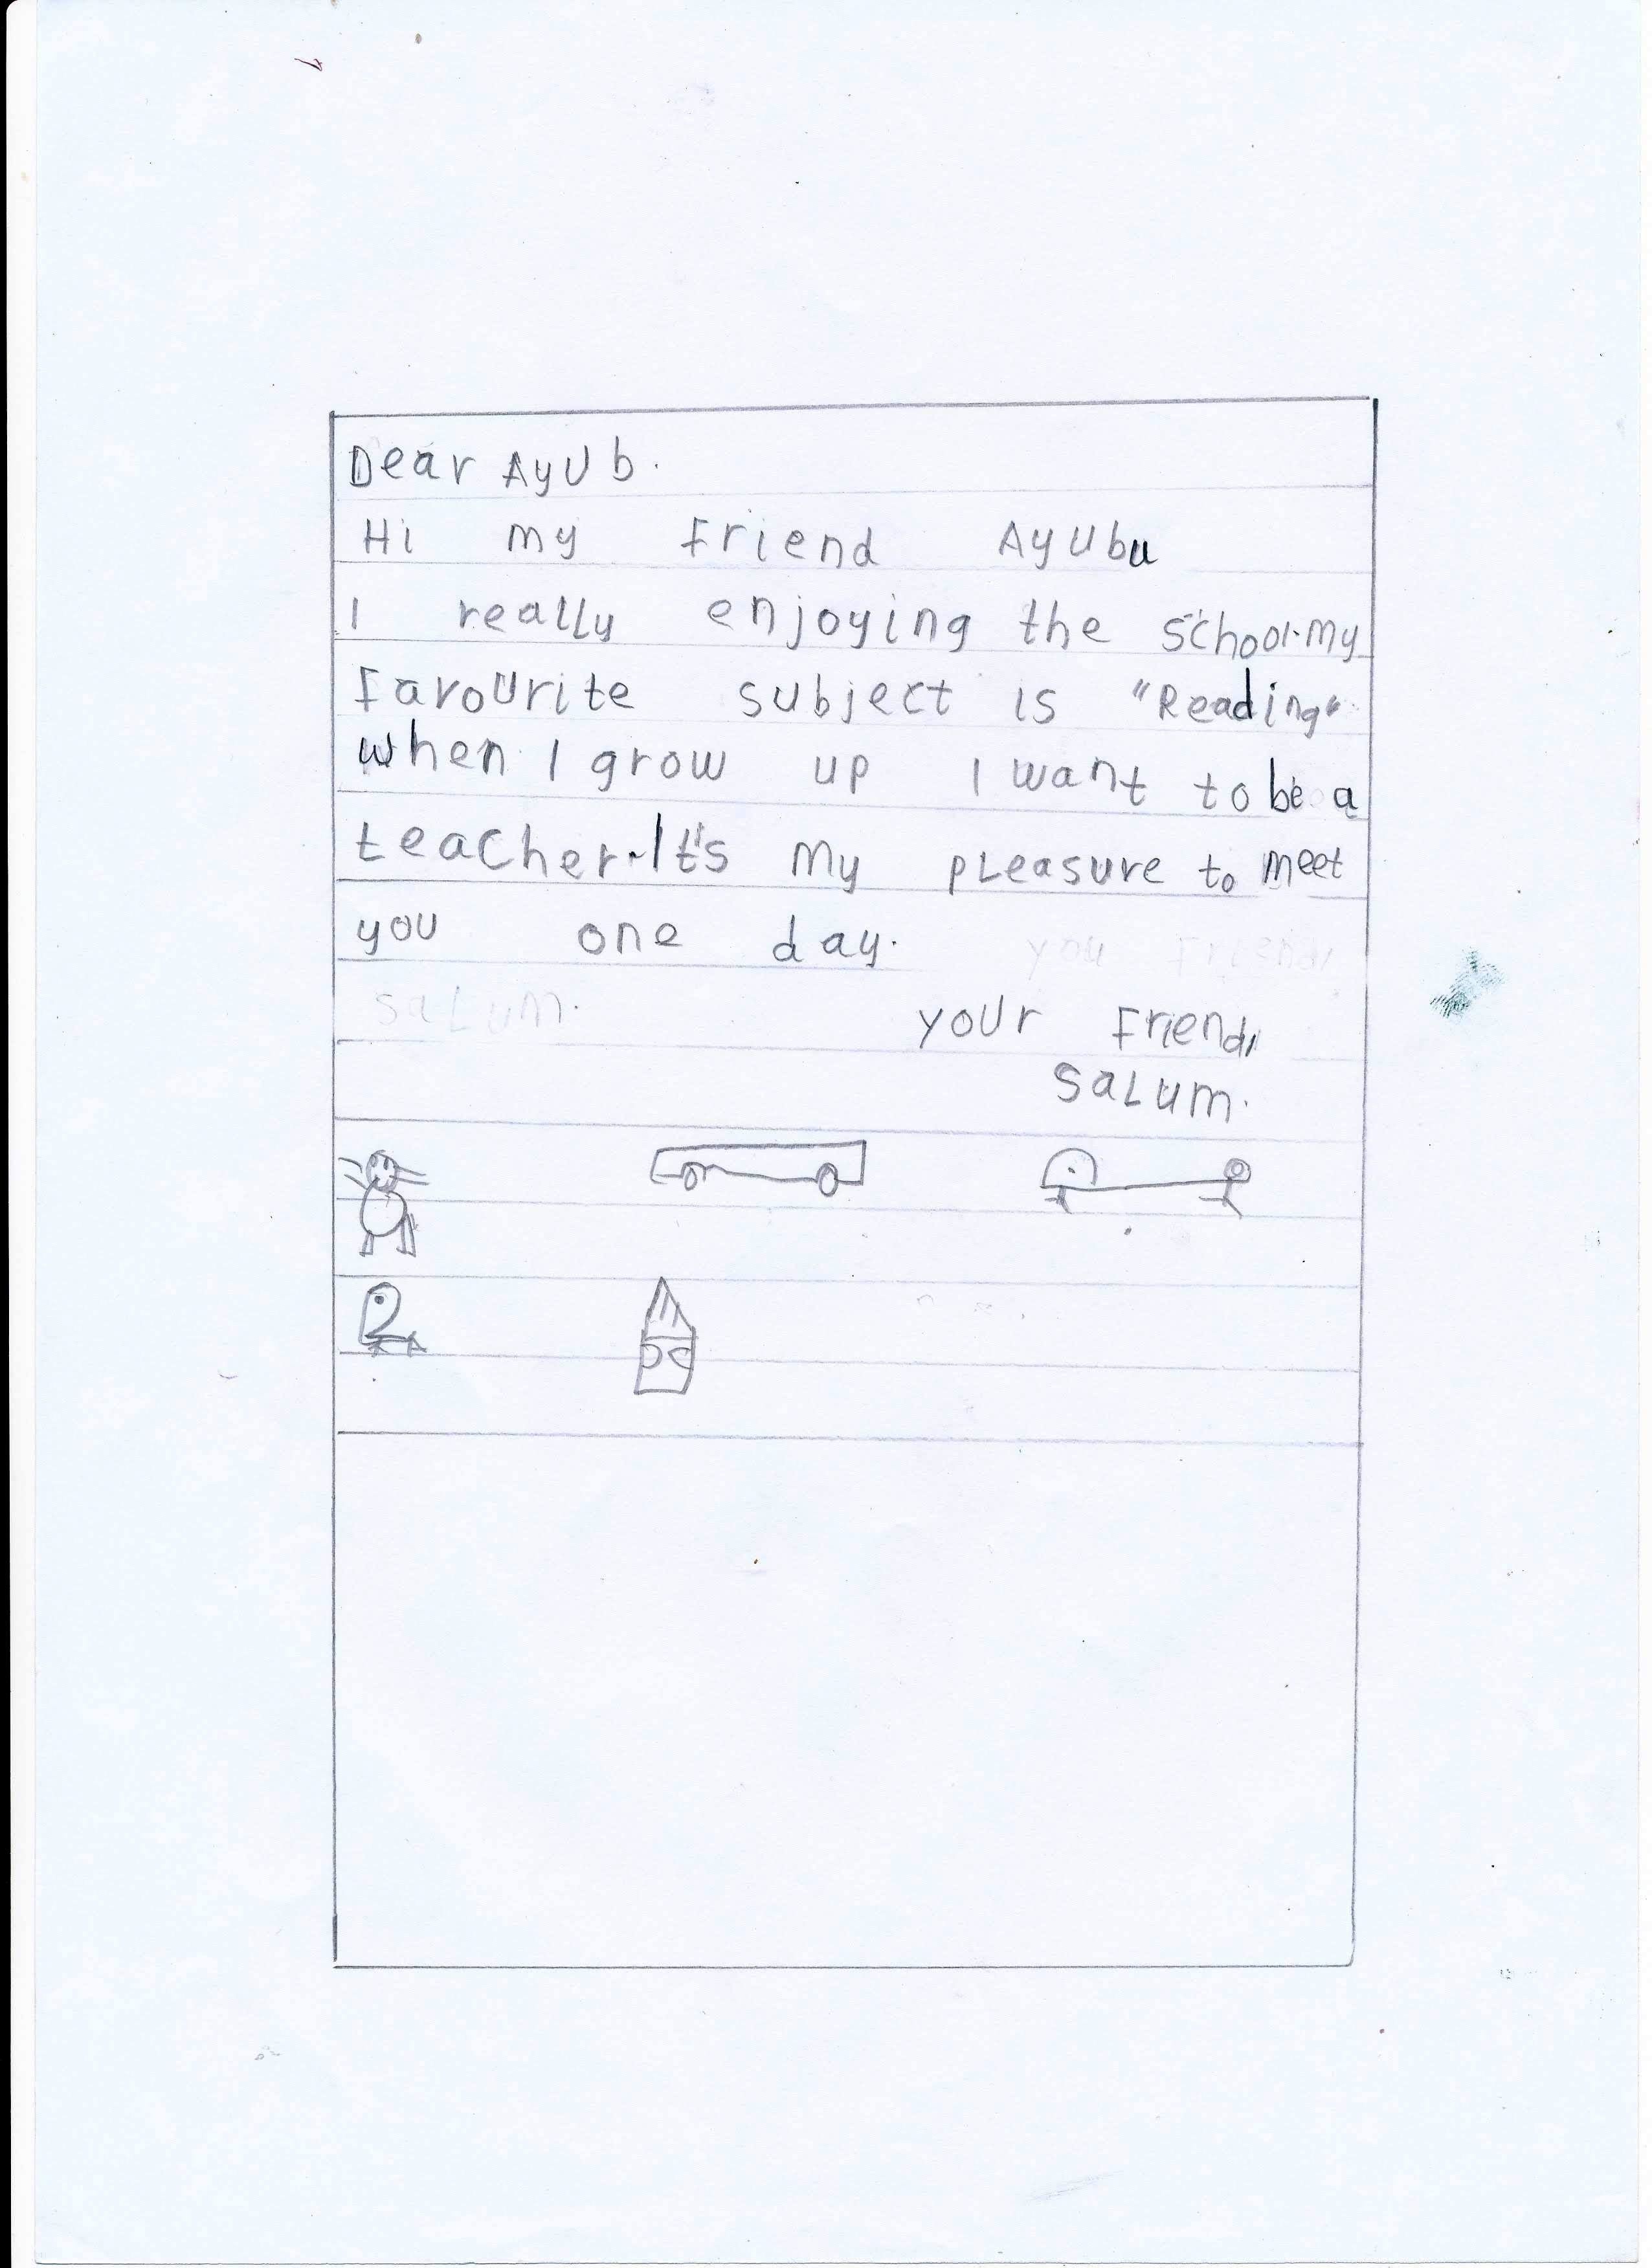 Dear Ayub.
Hi my friend Ayubu
I really enjoying the school. My
favourite subject is "Reading"
when I grow up I want to be a
teacher. It's my pleasure to meet
you one day. you friend,
salum.
your friend,
salum.